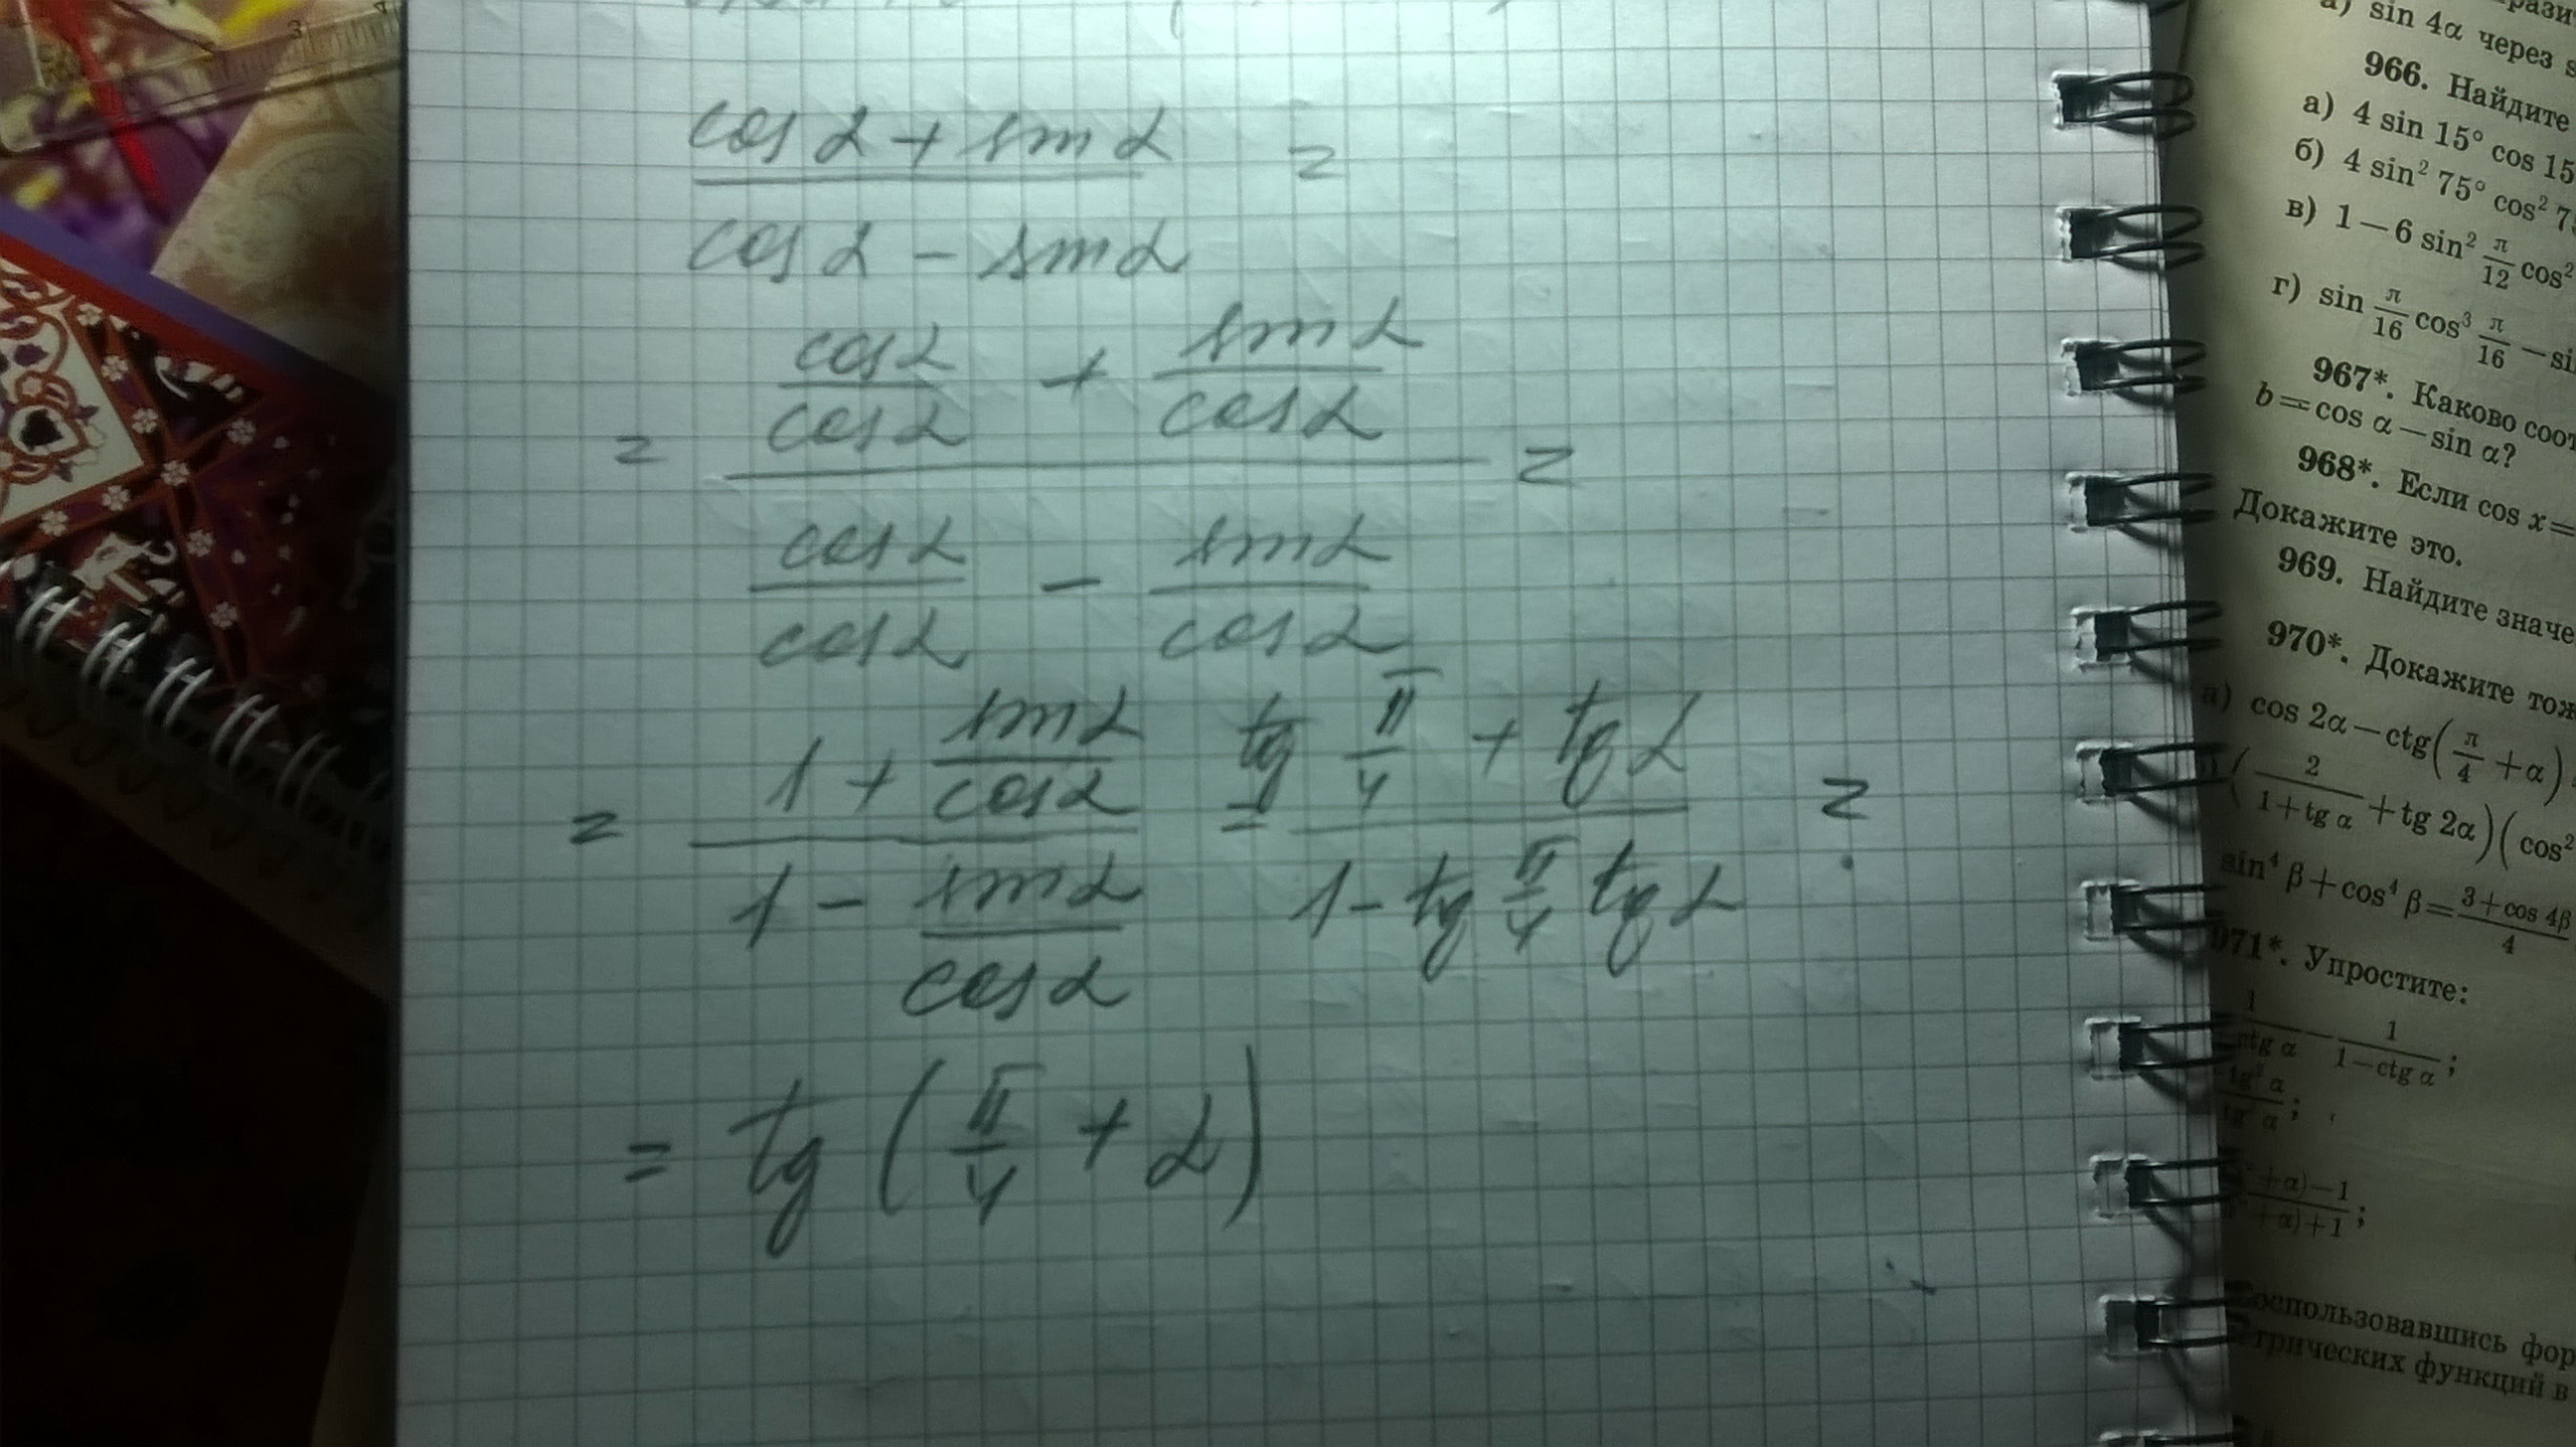 (cos α + sin α)/(cos α − sin α) =
= (cos α/cos α + sin α/cos α)/(cos α/cos α − sin α/cos α) =
= (1 + sin α/cos α)/(1 − sin α/cos α) = (tg π/4 + tg α)/(1 − tg π/4 tg α) =
= tg (π/4 + α)
а) sin 4α через
966. Найдите
а) 4 sin 15° cos 15
б) 4 sin² 75° cos² 7
в) 1 − 6 sin² π/12 cos²
г) sin π/16 cos³ π/16 − si
967*. Каково соот
b = cos α − sin α?
968*. Если cos x =
Докажите это.
969. Найдите значе
970*. Докажите тож
а) cos 2α − ctg(π/4 + α)
(2/(1 + tg α) + tg 2α)(cos²
sin⁴ β + cos⁴ β = (3 + cos 4β)/4
971*. Упростите:
− 1/(1 − ctg α);
+ α) − 1
+ α) + 1;
оспользовавшись фор
трических функций в